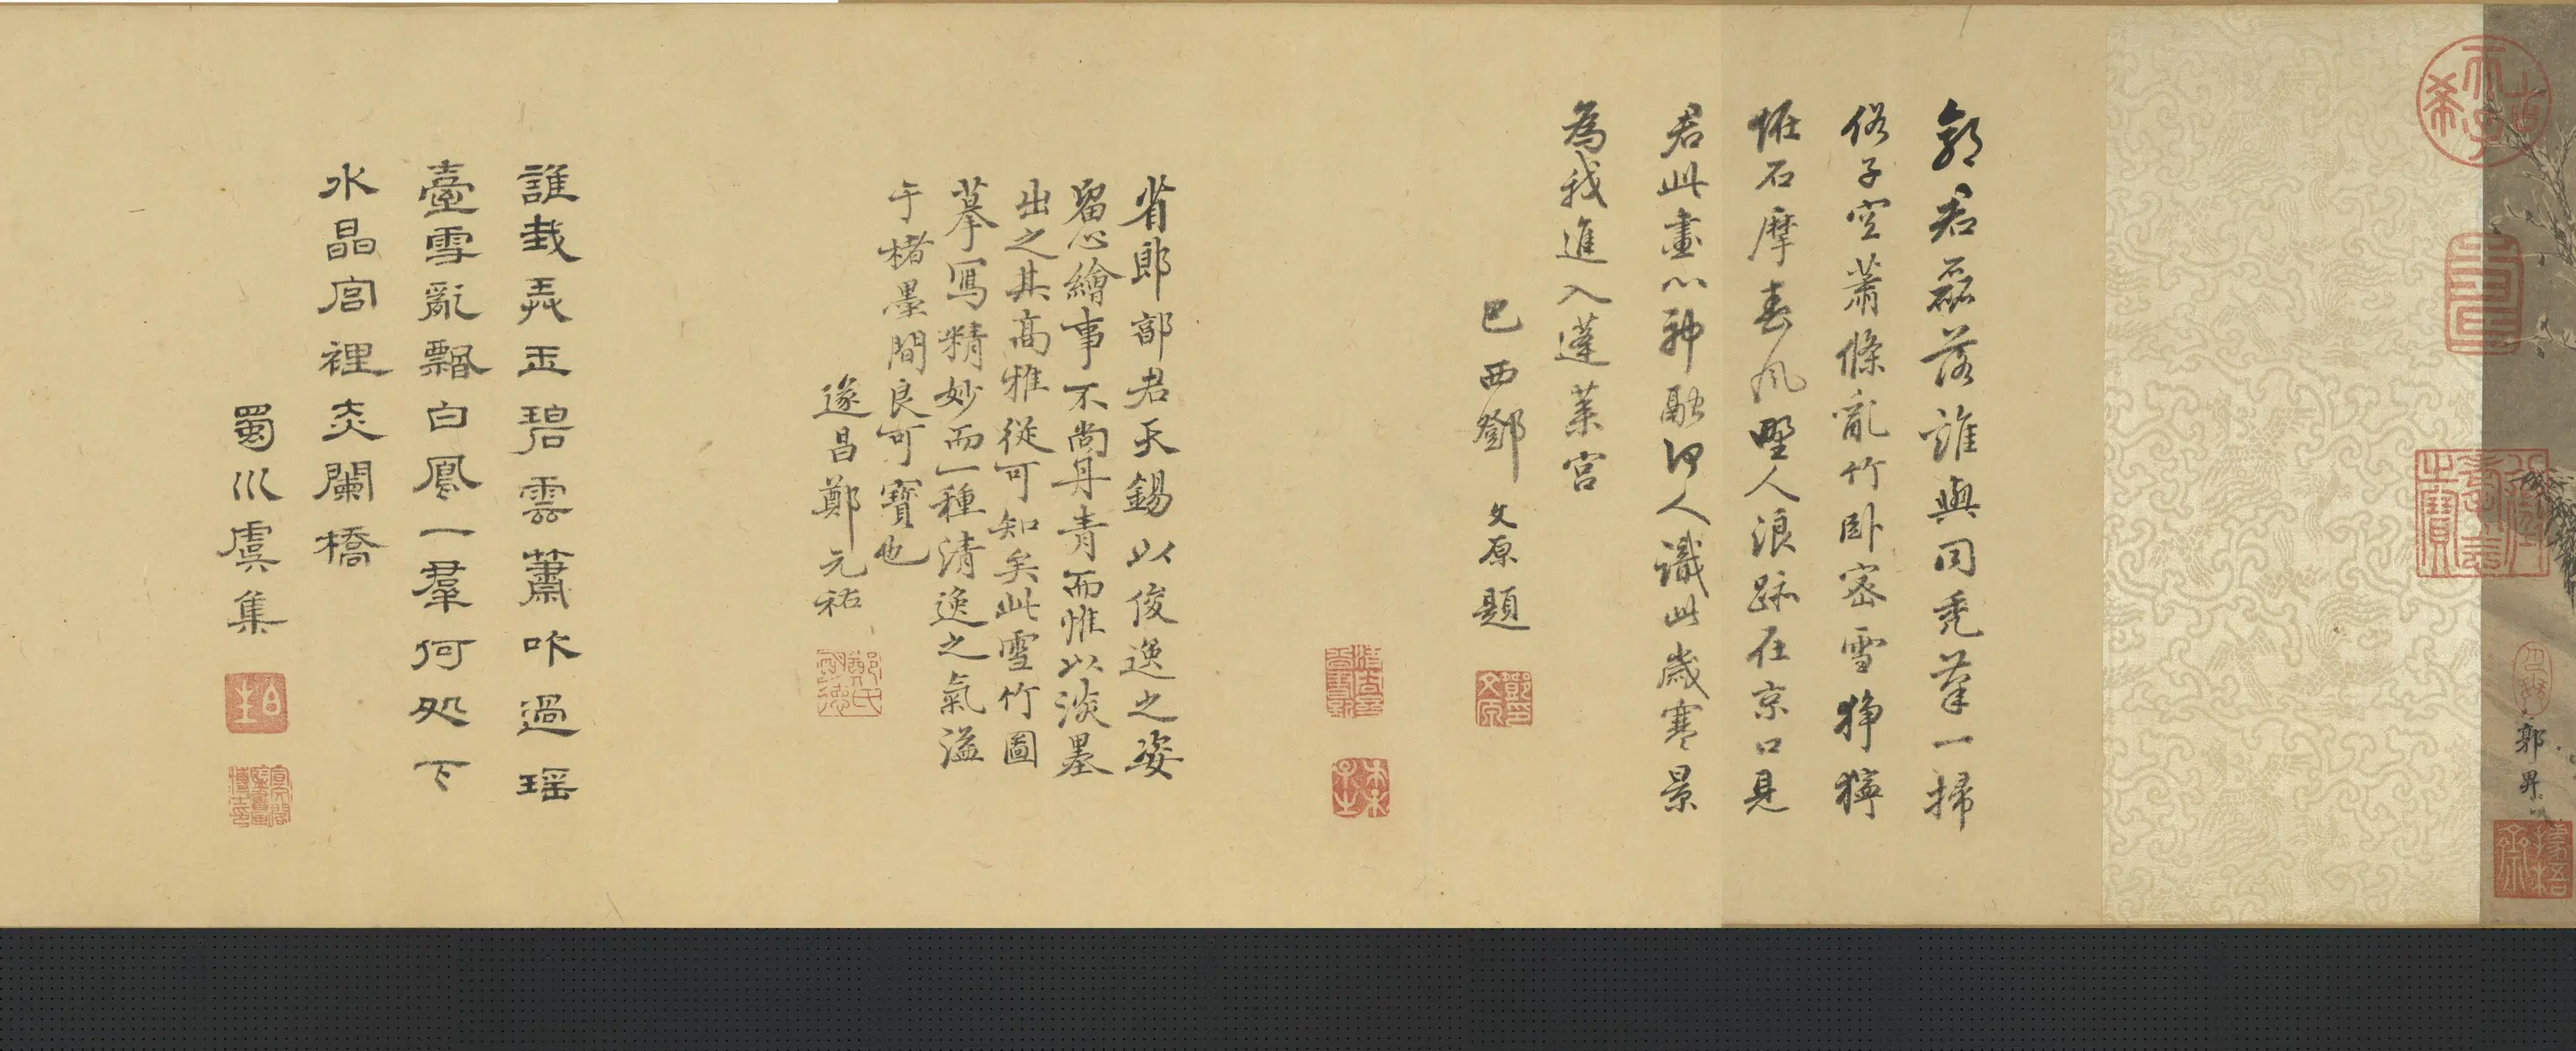 古希天子
壽
八徵耄念之寶
郭畀
郭君磊落誰與同禿筆一掃
俗子空蕭條亂竹卧密雪猙獰
恠石摩春风野人浪跡在京口見
君此畫心神融何人識此歲寒景
為我進入蓬莱宫
巴西鄧文原題
省郎郭君天錫以俊逸之姿
留心繪事不尚丹青而惟以淡墨
出之其高雅從可知矣此雪竹圖
摹寫精妙而一種清逸之氣溢
于楮墨間良可寶也
遂昌鄭元祐
誰裁弄玉碧雲簫吹過瑶
臺雪亂飄白鳳一羣何処下
水晶宫裡夾闌橋
蜀川虞集
伯生